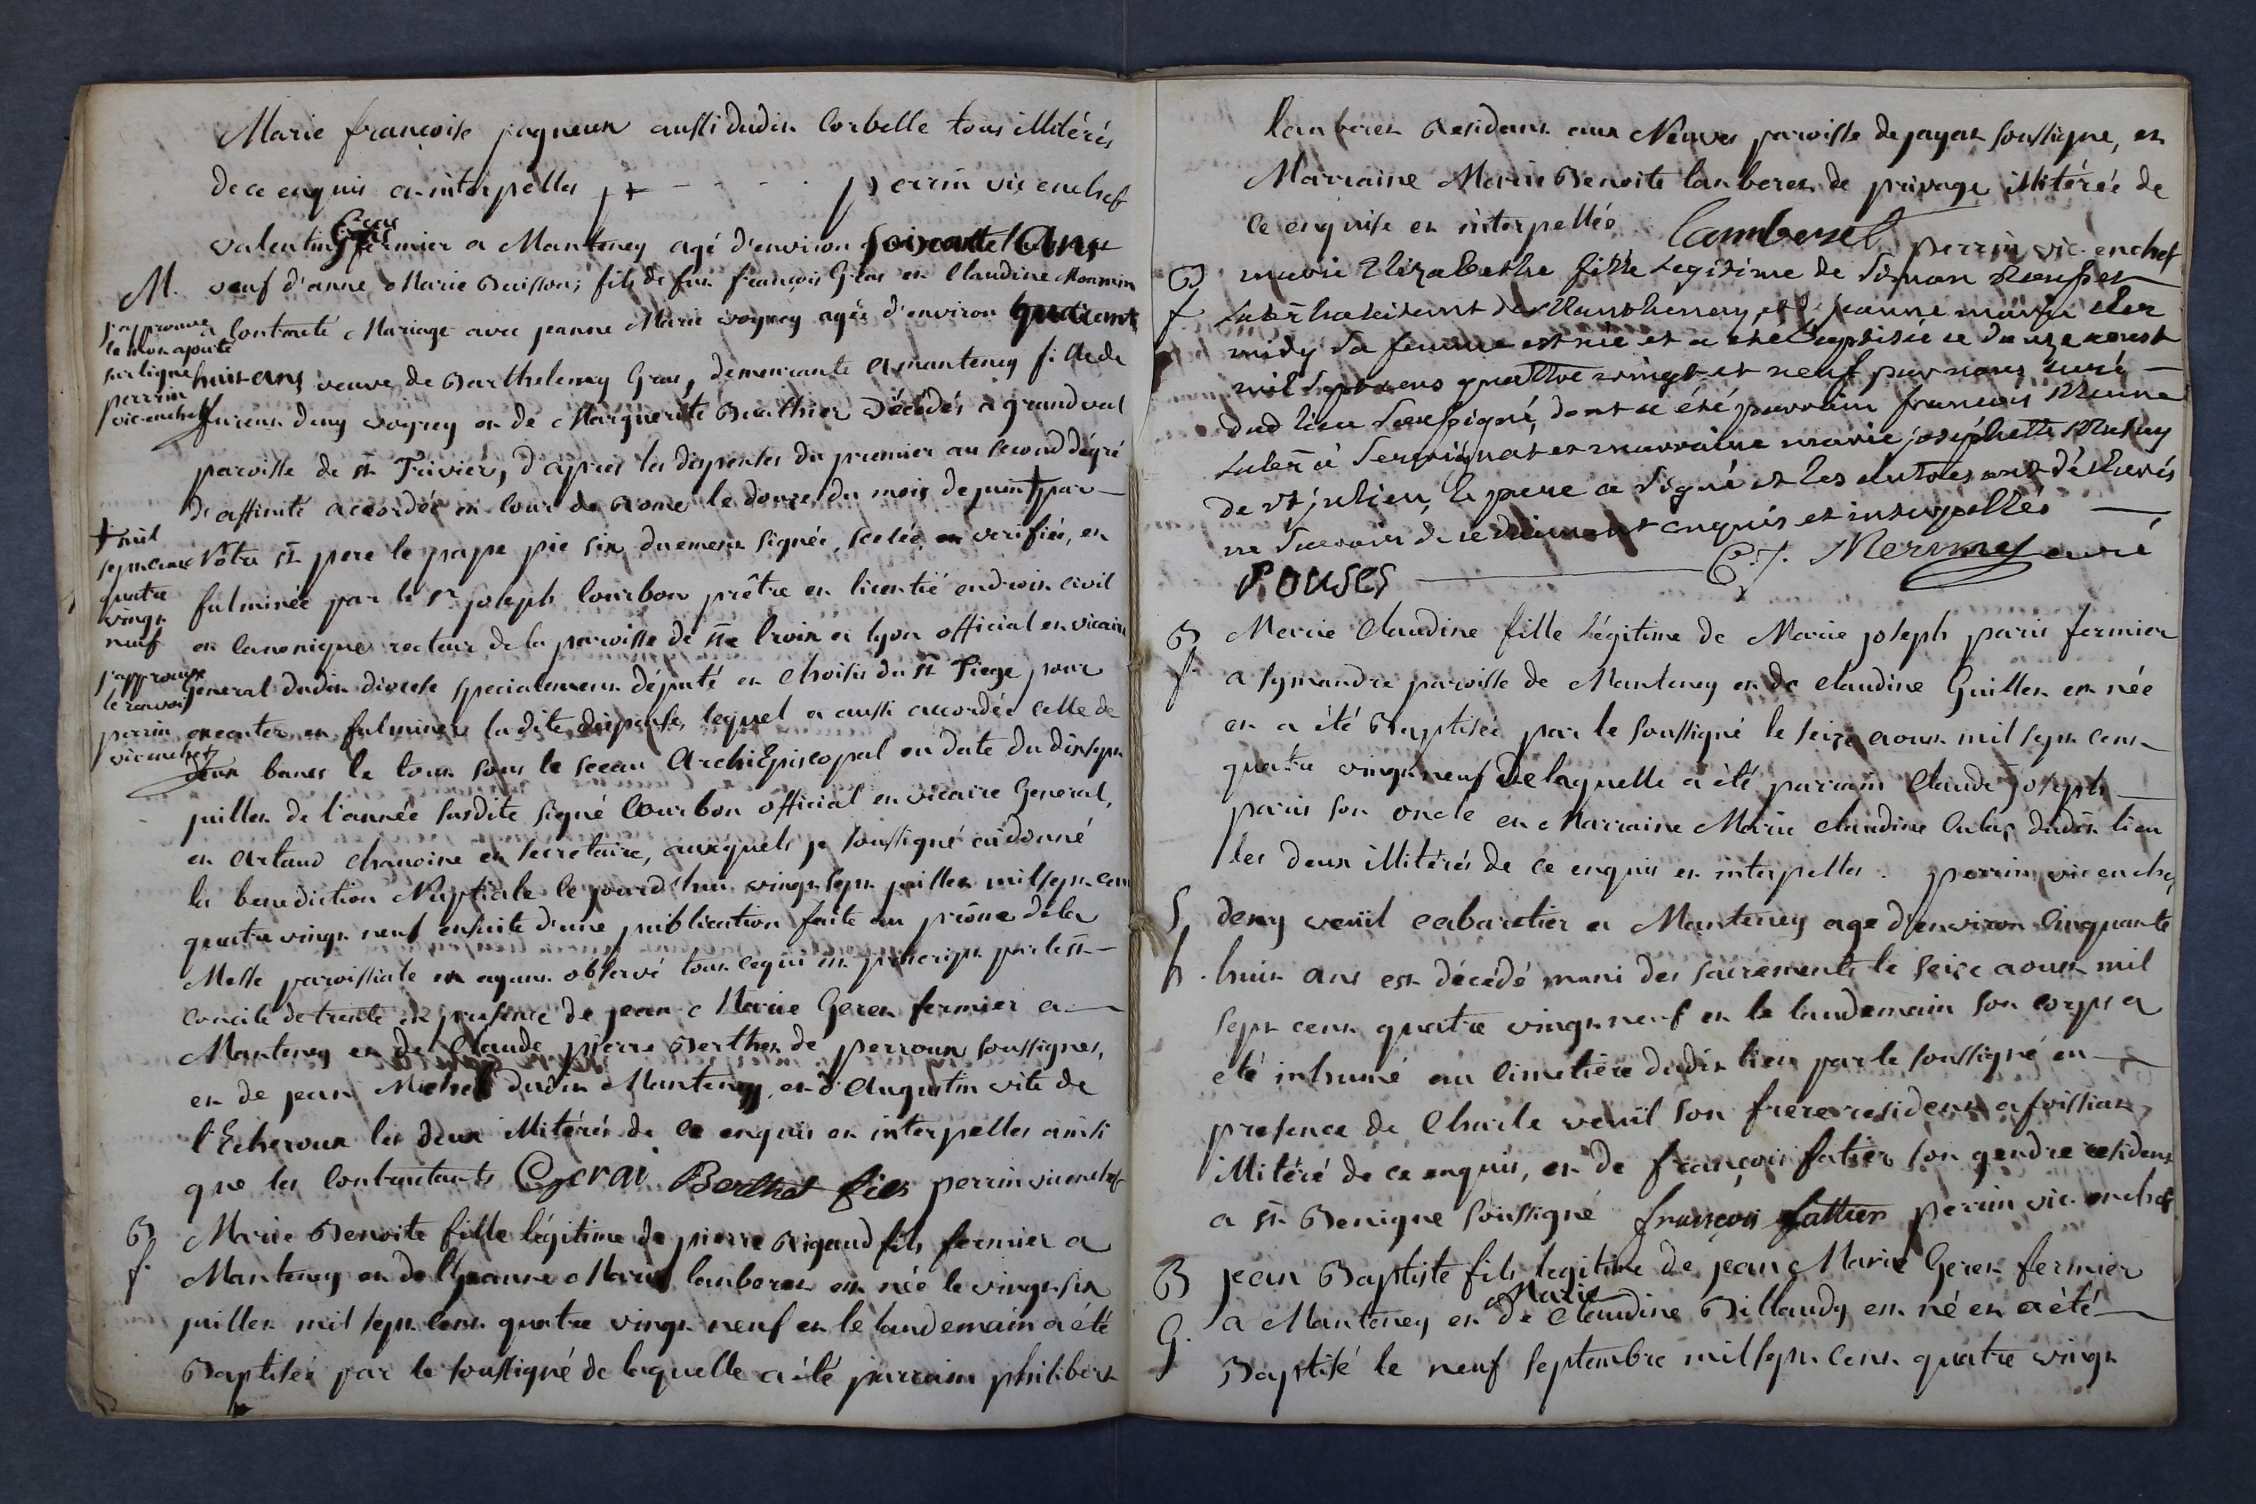 Marie françoise pagneux aussi dudit Corbelle tous illitérés
de ce enquis et interpellés perrin vic enchef
valentin Gras fermier a Manteney agé d'environ soixante ans
M. veuf d'anne Marie Buisson, fils de feu françois Gras et Claudine Monnin
a Contracté Mariage avec jeanne Marie voyrey agée d'environ quarante
j'approuve
le mot ajouté
sur ligne
perrin
vic-enchef
huit ans veuve de Barthelemy Gras, demeurante a manteney fille de
fureur deny voyrey et de Marguerite Berthier décédés a grandval
paroisse de st Trivier, d'après les dispenses du premier au second dégré
d'affinité accordées en Cour de Rome le douze du mois de juin + par
+ mil
sept cent
quatre
vingt
neuf
j'approuve
le renvoi
perrin
vic enchef
Nôtre st pere le pape pie six duement signée, scelée, et verifiée, et
fulminée par le sr joseph Courbon prêtre et licentié en droit civil
et canonique recteur de la paroisse de ste Croix a lyon official et vicaire
General dudit diocese specialement député et choisi du st siege pour
executer et fulminer la dite dispense, lequel a aussi accordée celle de
deux bancs le tout sous le sceau ArchiEpiscopal en date du dix sept
juillet de l'année susdite signé Courbon official et vicaire General,
et Artaud chanoine et secretaire, auxquels je soussigné ai donné
la benediction Nuptiale le jourd'hui vingt sept juillet mil sept cent
quatre vingt neuf ensuite d'une publication faite au prône de la
Messe paroissiale et ayant observé tout ce qui est prescript par le st
Concile de trente en presence de jean Marie Geret fermier a
Manteney et de Claude pierre Berthet de perroux soussignés,
et de jean Michel dudit Manteney et d'Augustin vite de
l'Echeroux les deux illitérés de ce enquis et interpellés ainsi
que les Contractants Gerai Berthet fils perrin vic enchef
B Marie Benoite fille légitime de pierre Rigaud fils fermier a
f. Manteney et de jeanne Marie lamberet est née le vingt six
juillet mil sept cent quatre vingt neuf et le landemain a été
Baptisée par le soussigné de laquelle a été parrain philibert
lamberet Residant aux Neuves paroisse de jayat soussigné, et
Marraine Marie Benoite lamberet de privage illitérée de
ce enquise et interpellée Lamberet perrin vic. enchef
B marie Elizabethe fille Legitime de Simon
f habitant de Manthenay, et jeanne marie
midy sa femme est née et a été baptisée le douze aoust
mil sept cens quattre vingt et neuf par nous curé
dud lieu soussigné, dont a été parrain francois
a Servignat et marraine marie josephette
de st julien, le pere a signé et les autres ont déclarés
ne sçavoir de ce duement enquis et interpellés
Pouses C. J. Mermey curé
B Marie Claudine fille légitime de Marie joseph paris fermier
f. a symandre paroisse de Manteney et de claudine Guillet est née
et a été Baptisée par le soussigné le seize aoust mil sept cent
quatre vingt neuf de laquelle a été parrain Claude joseph
paris son oncle et Marraine Marie claudine Culas dudit lieu
les deux illitérés de ce enquis et interpellés. perrin vic enchef
S. deny veuïl cabaretier a Manteney agé d'environ Cinquante
h. huit ans est décédé muni des sacrements le seize aoust mil
sept cent quatre vingt neuf et le landemain son corps a
été inhumé au cimetière dudit lieu par le soussigné en
presence de Charle veuïl son frere residant a foissiat
illitéré de ce enquis, et de françois fatier son gendre residant
a st Benigne soussigné françois fattier perrin vic. enchef
B jean Baptiste fils legitime de jean Marie Geret fermier
G. a Manteney et de Marie Claudine Billaudy est né et a été
Baptisé le neuf septembre mil sept cent quatre vingt